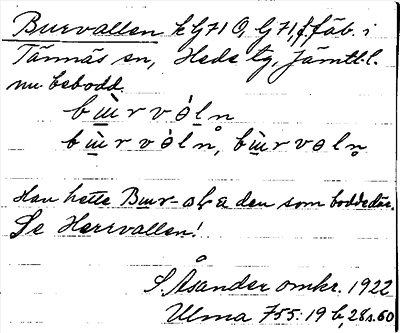 Burvallen k G71 O, G71, f. fäb. i
Tännäs sn, Hede tg, Jämtl. l.
nu bebodd.
bu̱̇r vȯḻn̥
bu̱̇r vȯln̥, bu̱̇r voln̥
Han hette Bur- den som bodde där.
Se Herrvallen!
S Åsander omkr. 1922
Ulma 755:19 b, 28 s. 60